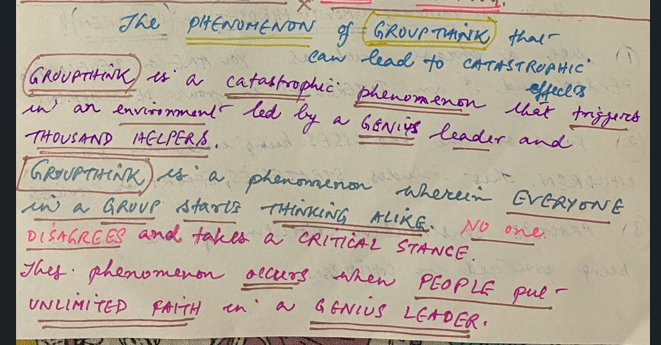 The PHENOMENON of GROUPTHINK that
can lead to CATASTROPHIC
effects
GROUPTHINK is a catastrophic phenomenon that triggers
in an environment led by a GENIUS leader and
THOUSAND HELPERS.
GROUPTHINK is a phenomenon wherein EVERYONE
in a GROUP starts THINKING ALIKE. NO one
DISAGREES and takes a CRITICAL STANCE.
This phenomenon occurs when PEOPLE put
UNLIMITED FAITH in a GENIUS LEADER.